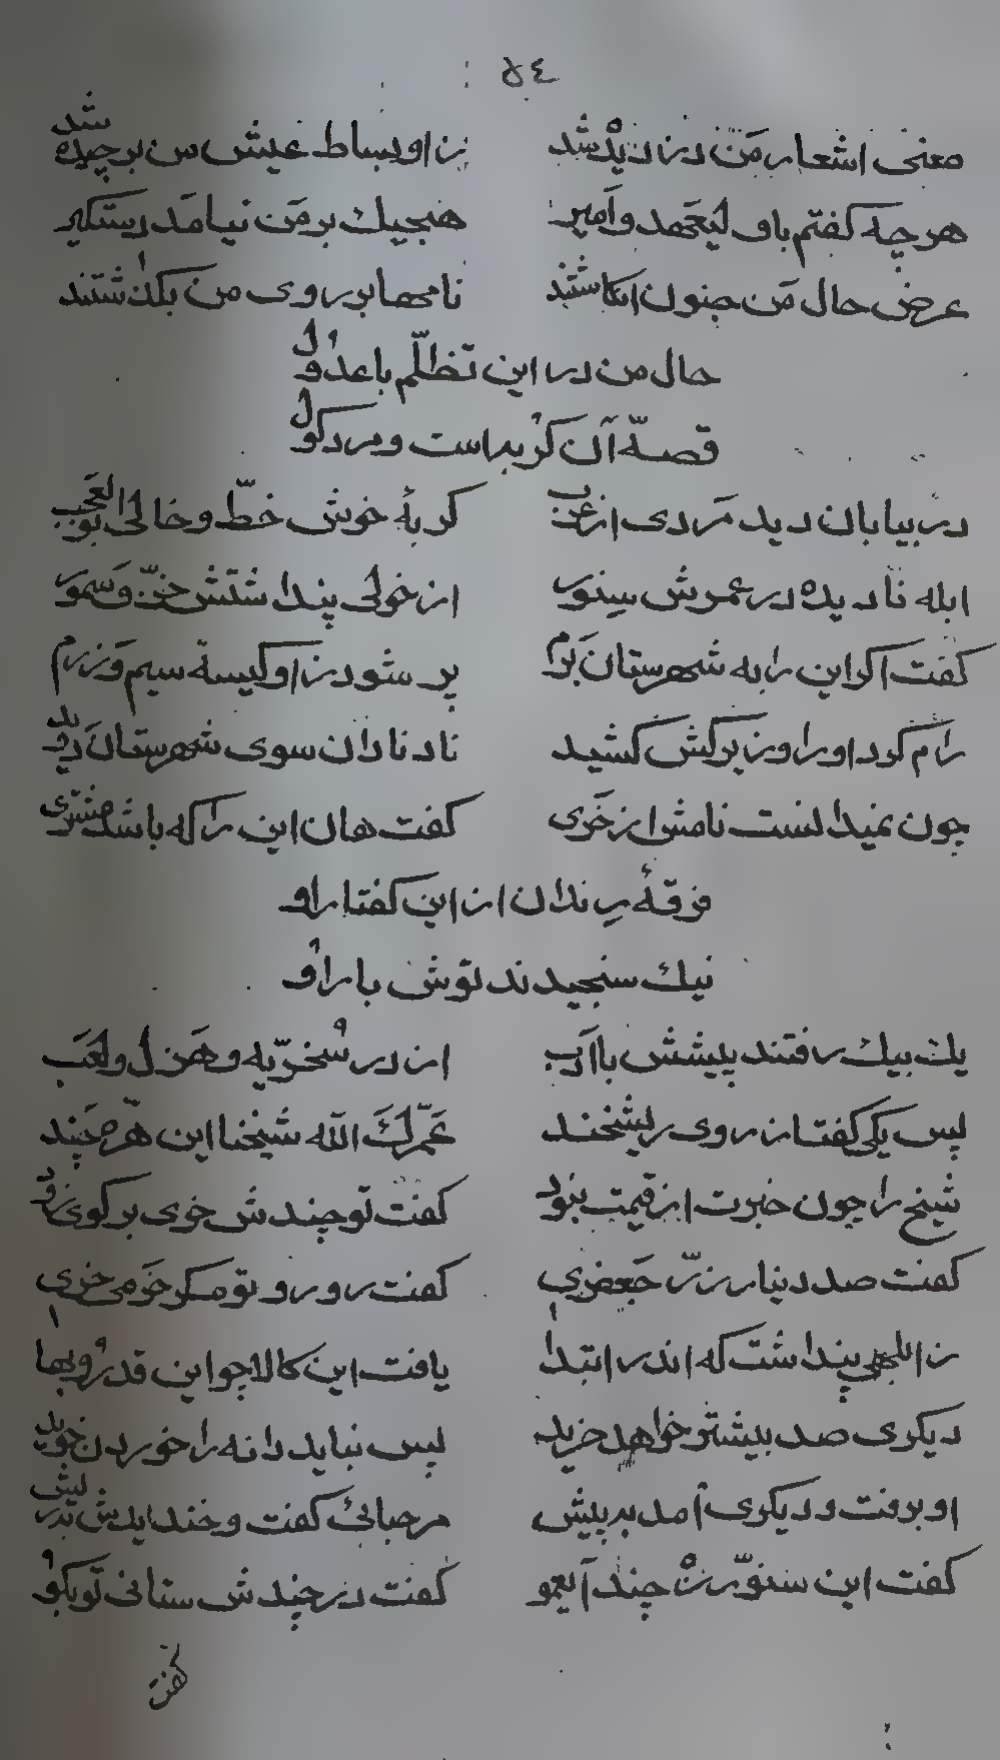 ٥٤
معنی اشعار من دزدیده شد زاو بساط عیش من برچیده شد
هرچه کفتم باولیعهد وامیر هیچیك بر من نیامد دستکیر
عرض حال من جنون انکاشتند نامها بر روی من بکذاشتند
حال من در این تظلّم باعدول
قصهٔ آن کربه است ومرد کول
در بیابان دید مردی از عرب کربهٔ خوش خطّ وخالی بوالعجب
ابله نادیده در عمرش سنور از خولی پنداشتش خزّ وسمور
کفت اکر این را به شهرستان برم پر شود زاو کیسهٔ سیم وزرم
رام کرد اورا وزیرکش کشید تاد نادان سوی شهرستان دوید
چون نمیدانست نامش از خری کفت هان این را که باشد مشتری
فرقهٔ رندان از این کفتار او
نیك سنجیدند توش بار او
یك بیك رفتند پیشش باادب از در سخریّه وهزل ولعب
پس یکی کفتا زروی ریشخند عمّرك الله شیخنا این هرّه چند
شیخ را چون خبرت از قیمت نبود کفت تو چندش خری برکوی زود
کفت صد دینار زرّ جعفری کفت رو رو تو مکر خر می خری
زابلهی پنداشت که اندر ابتدا یافت این کالا چو این قدر وبها
دیکری صد بیشتر خواهد خرید پس نباید دانه را خوردن خوید
او برفت ودیکری آمد به پیش مرحبائی کفت وخندیدش بریش
کفت این سنّور را چند آیعمو کفت در چندش ستانی تو بکو
کفت